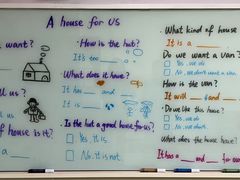 A house for us
want?
ll us?
of house is it?
How is the hut?
It's too
What does it have?
It has
Is the hut a good house for us?
Yes, it is.
No, it is not.
What kind of house
It is a
Do we want a van
Yes, we do
No, we don't want a van
How is the van?
It will
Do we like this house?
Yes, we do
No, we don't
What does the house have?
It has a and for our